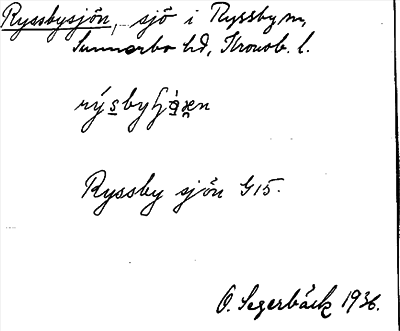 Ryssbysjön, sjö i Ryssby sn,
Sunnerbo hd, Kronob. l.
Ryssby sjön G15.
O. Segerbäck 1936.